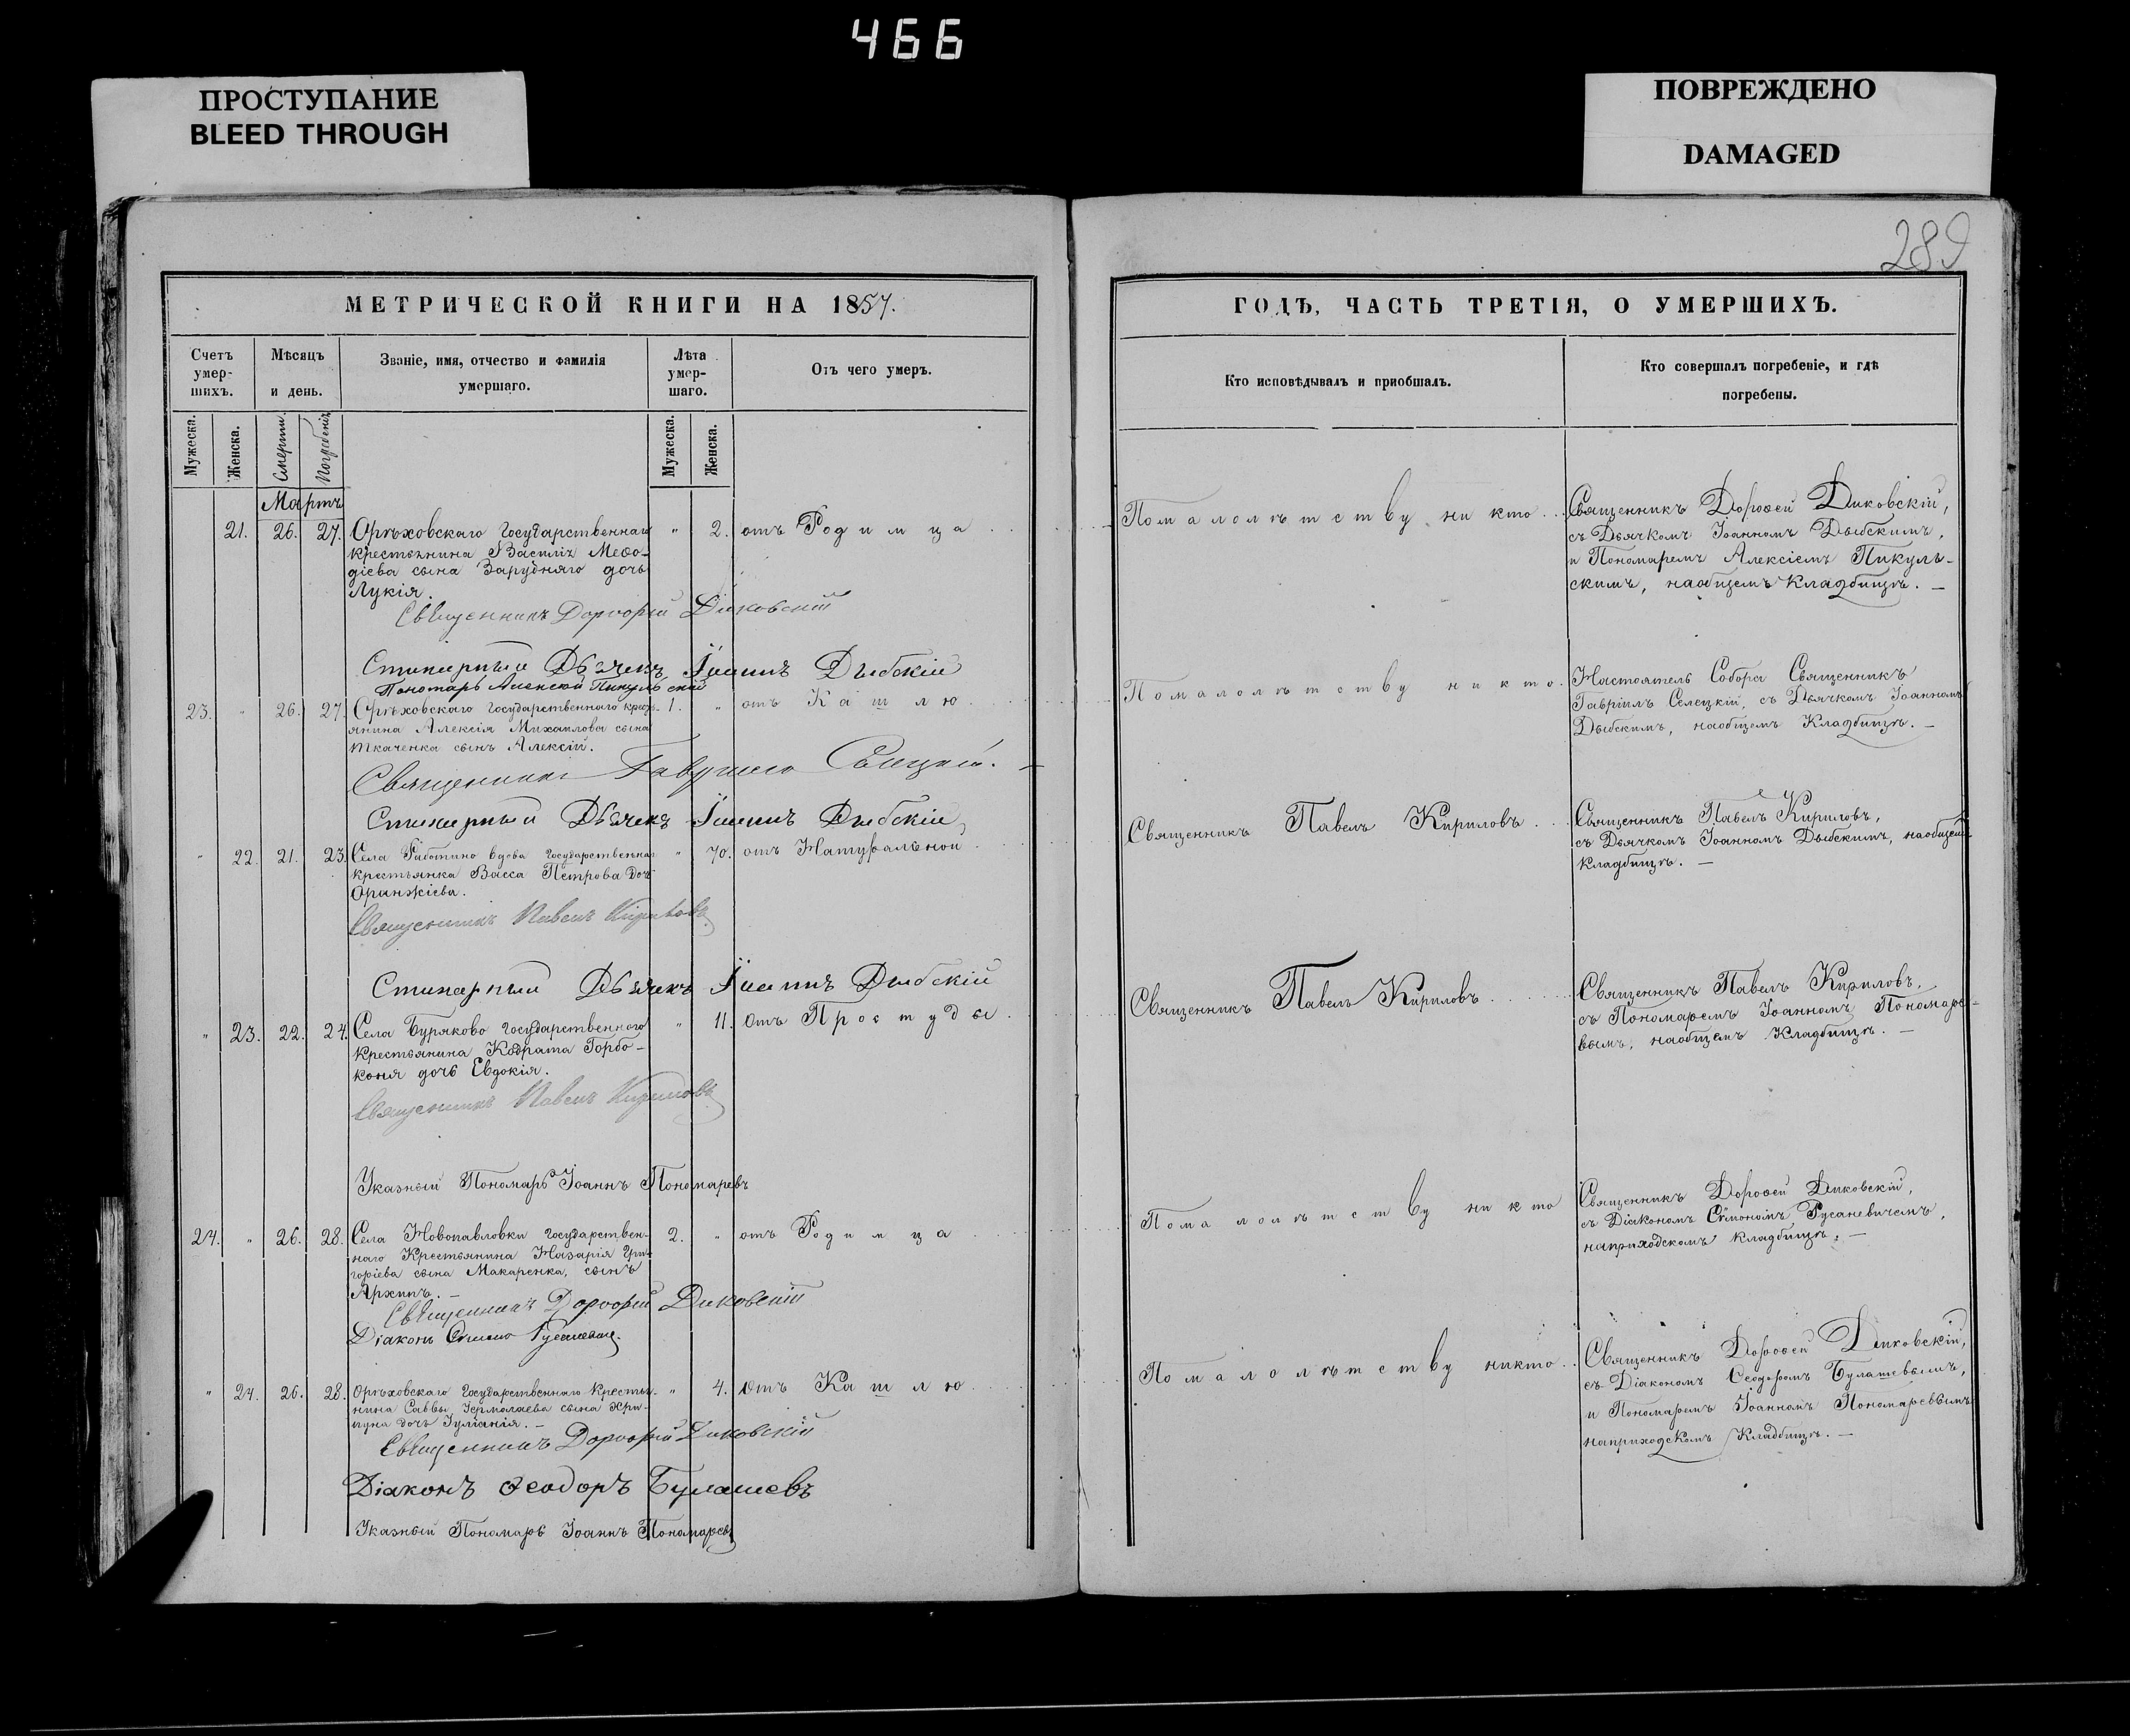 466
ПРОСТУПАНИЕ
BLEED THROUGH
ПОВРЕЖДЕНО
DAMAGED
289
МЕТРИЧЕСКОЙ КНИГИ НА 1857.
Счетъ умер-шихъ.
Мѣсяцъ и день.
Званіе, имя, отчество и фамилія умершаго.
Лѣта умер-шаго.
Отъ чего умеръ.
Мужеска.
Женска.
Смерти.
Погребенія
Мужеска.
Женска.
Мартъ
21. 26. 27. Орѣховскаго Государственнаго " 2. отъ Родимца
крестьянина Василія Меѳо-
діева сына Зарудняго дочь
Лукія.
Священникъ Дороѳей Диковскій
Стихарный Дьячекъ Іоаннъ Дыбскій
Пономарь Алексей Пикульскій
23. " 26. 27. Орѣховскаго Государственнаго крест- 1. " отъ Кашлю
янина Алексія Михаилова сына
Ткаченка сынъ Алексій.
Священникъ Гавріилъ Селецкій.
Стихарный Дьячекъ Іоаннъ Дыбскій
" 22. 21. 23. Села Работино вдова Государственная " 70. отъ Натуральной
крестьянка Васса Петрова дочь
Священникъ Павелъ Кириловъ
Стихарный Дьячекъ Іоаннъ Дыбскій
" 23. 22. 24. Села Буряково Государственного " 11. Отъ Простуды
крестьянина Кодрата Горбо-
коня дочь Евдокія.
Священникъ Павелъ Кириловъ
Указный Пономарь Іоаннъ Пономаревъ
24. " 26. 28. Села Новопавловки Государствен- 2. " отъ Родимца
наго Крестьянина Назарія Гри-
горіева сына Макаренка, сынъ
Архипъ. —
Священникъ Дороѳей Диковскій
Діаконъ Симонъ Русаневичъ
" 24. 26. 28. Орѣховскаго Государственнаго Крестья- " 4. Отъ Кашлю
нина Саввы Іермолаева сына Хри-
пуна дочь Іуліанія. —
Священникъ Дороѳей Диковскій
Діаконъ Ѳеодоръ Булашевъ
Указный Пономарь Іоаннъ Пономаревъ
ГОДЪ, ЧАСТЬ ТРЕТІЯ, О УМЕРШИХЪ.
Кто исповѣдывалъ и пріобщалъ.
Кто совершалъ погребеніе, и гдѣ
погребены.
Помалолѣтству никто
Священникъ Дороѳей Диковскій,
съ Дьячкомъ Іоанномъ Дыбскимъ,
и Пономаремъ Алексіемъ Пикуль-
скимъ, наобщемъ Кладбищѣ. —
Помалолѣтству никто.
Настоятель Собора Священникъ
Гавріилъ Селецкій, съ Дьячкомъ Іоанномъ
Дыбскимъ, наобщемъ Кладбищѣ. —
Священникъ Павелъ Кириловъ
Священникъ Павелъ Кириловъ,
съ Дьячкомъ Іоанномъ Дыбскимъ, наобщемъ
кладбищѣ. —
Священникъ Павелъ Кириловъ
Священникъ Павелъ Кириловъ,
съ Пономаремъ Іоанномъ Пономаре-
вымъ, наобщемъ Кладбищѣ. —
Помалолѣтству никто
Священникъ Дороѳей Диковскій,
съ Діакономъ Симономъ Русаневичемъ,
наприходскомъ кладбищѣ. —
Помалолѣтству никто
Священникъ Дороѳей Диковскій,
съ Діакономъ Ѳеодоромъ Булашевымъ,
и Пономаремъ Іоанномъ Пономаревымъ
наприходскомъ Кладбищѣ. —